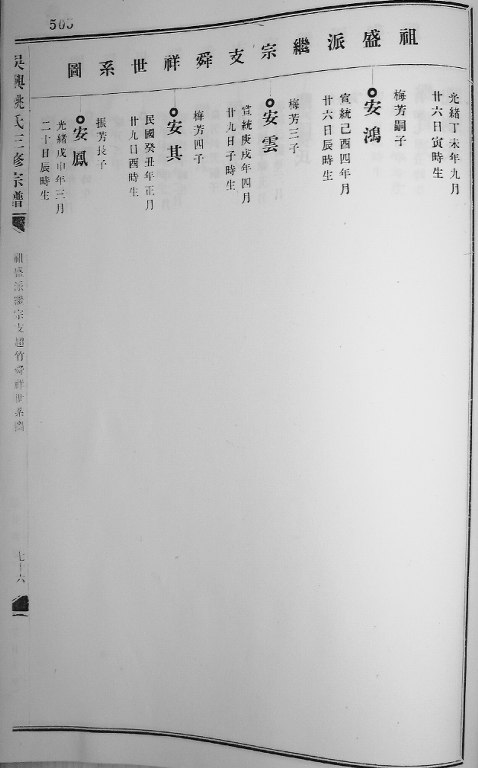 祖盛派繼宗支舜祥世系圖
光緒丁未年九月
廿六日寅時生
梅芳嗣子
安鴻
宣統己酉四年月
廿六日辰時生
梅芳三子
安雲
宣統庚戌年四月
廿九日子時生
梅芳四子
安其
民國癸丑年正月
廿九日酉時生
振芳長子
安鳳
光緒戊申年三月
二十日辰時生
505
吳興姚氏三修宗譜
祖盛派繼宗支超竹舜祥世系圖
七十六